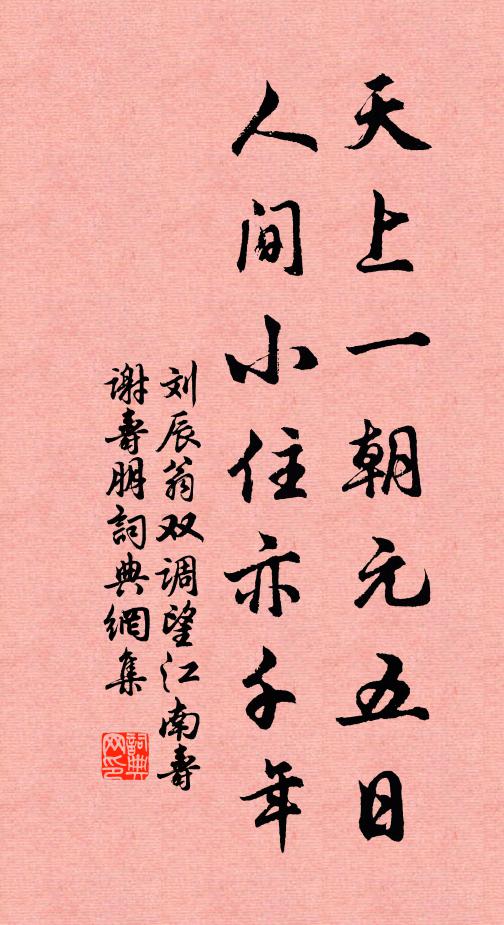 天上一朝元五日
人间小住亦千年
刘辰翁双调望江南寿
谢寿朋詞典網集
詞典网印